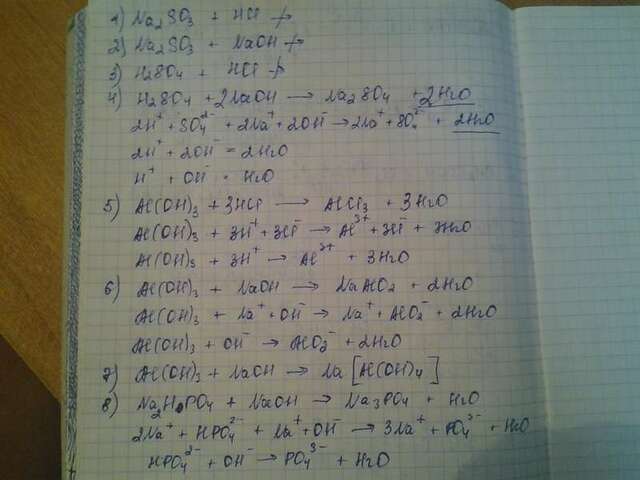 1) Na₂SO₃ + HCl ↛
2) Na₂SO₃ + NaOH ↛
3) H₂SO₄ + HCl ↛
4) H₂SO₄ + 2NaOH → Na₂SO₄ + 2H₂O
2H⁺ + SO₄²⁻ + 2Na⁺ + 2OH⁻ → 2Na⁺ + SO₄²⁻ + 2H₂O
2H⁺ + 2OH⁻ = 2H₂O
H⁺ + OH⁻ = H₂O
5) Al(OH)₃ + 3HCl → AlCl₃ + 3H₂O
Al(OH)₃ + 3H⁺ + 3Cl⁻ → Al³⁺ + 3Cl⁻ + 3H₂O
Al(OH)₃ + 3H⁺ → Al³⁺ + 3H₂O
6) Al(OH)₃ + NaOH → NaAlO₂ + 2H₂O
Al(OH)₃ + Na⁺ + OH⁻ → Na⁺ + AlO₂⁻ + 2H₂O
Al(OH)₃ + OH⁻ → AlO₂⁻ + 2H₂O
7) Al(OH)₃ + NaOH → Na[Al(OH)₄]
8) Na₂HPO₄ + NaOH → Na₃PO₄ + H₂O
2Na⁺ + HPO₄²⁻ + Na⁺ + OH⁻ → 3Na⁺ + PO₄³⁻ + H₂O
HPO₄²⁻ + OH⁻ → PO₄³⁻ + H₂O